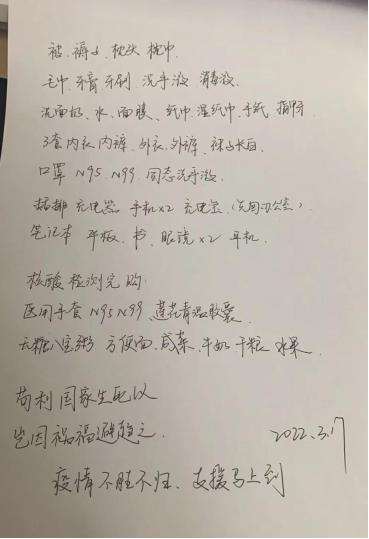 被、褥子、枕头 枕巾
毛巾 牙膏 牙刷 洗手液 消毒液
洗面奶、水、面膜、纸巾 湿纸巾、手纸
3套内衣 内裤、外衣、外裤、袜子
口罩 N95、N99 固态洗手液
插排 充电器 手机×2 充电宝
笔记本 平板、书、眼镜×2 耳机
核酸检测完 购
医用手套 N95 N99、莲花青温胶囊
无糖八宝粥 方便面、咸菜、牛奶 干粮 水果
苟利国家生死以
岂因祸福避趋之
2022.3.17
疫情不胜不归、支援马上到